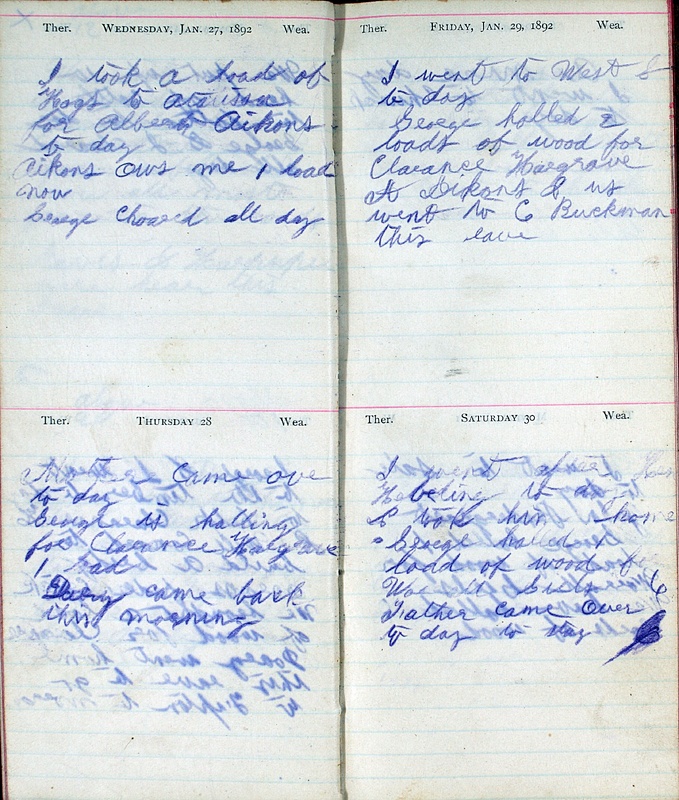 Ther. WEDNESDAY, JAN. 27, 1892 Wea.
I took a load of
Hogs to
for Albert Aikons
to day
Aikons ows me 1 load
now
George Chored all day
Ther. THURSDAY 28 Wea.
Mother came ove
to day
George is halling
for Clarance Hargrave
1 rad
came back
this morning
Ther. FRIDAY, JAN. 29, 1892 Wea.
I went to West
to day
George halled 2
loads of wood for
Clarance Hargrave
& us
went to C Buckman
this eave
Ther. SATURDAY 30 Wea.
I went after
to day
& took him home
George halled 1
load of wood
Father came over
to day to stay